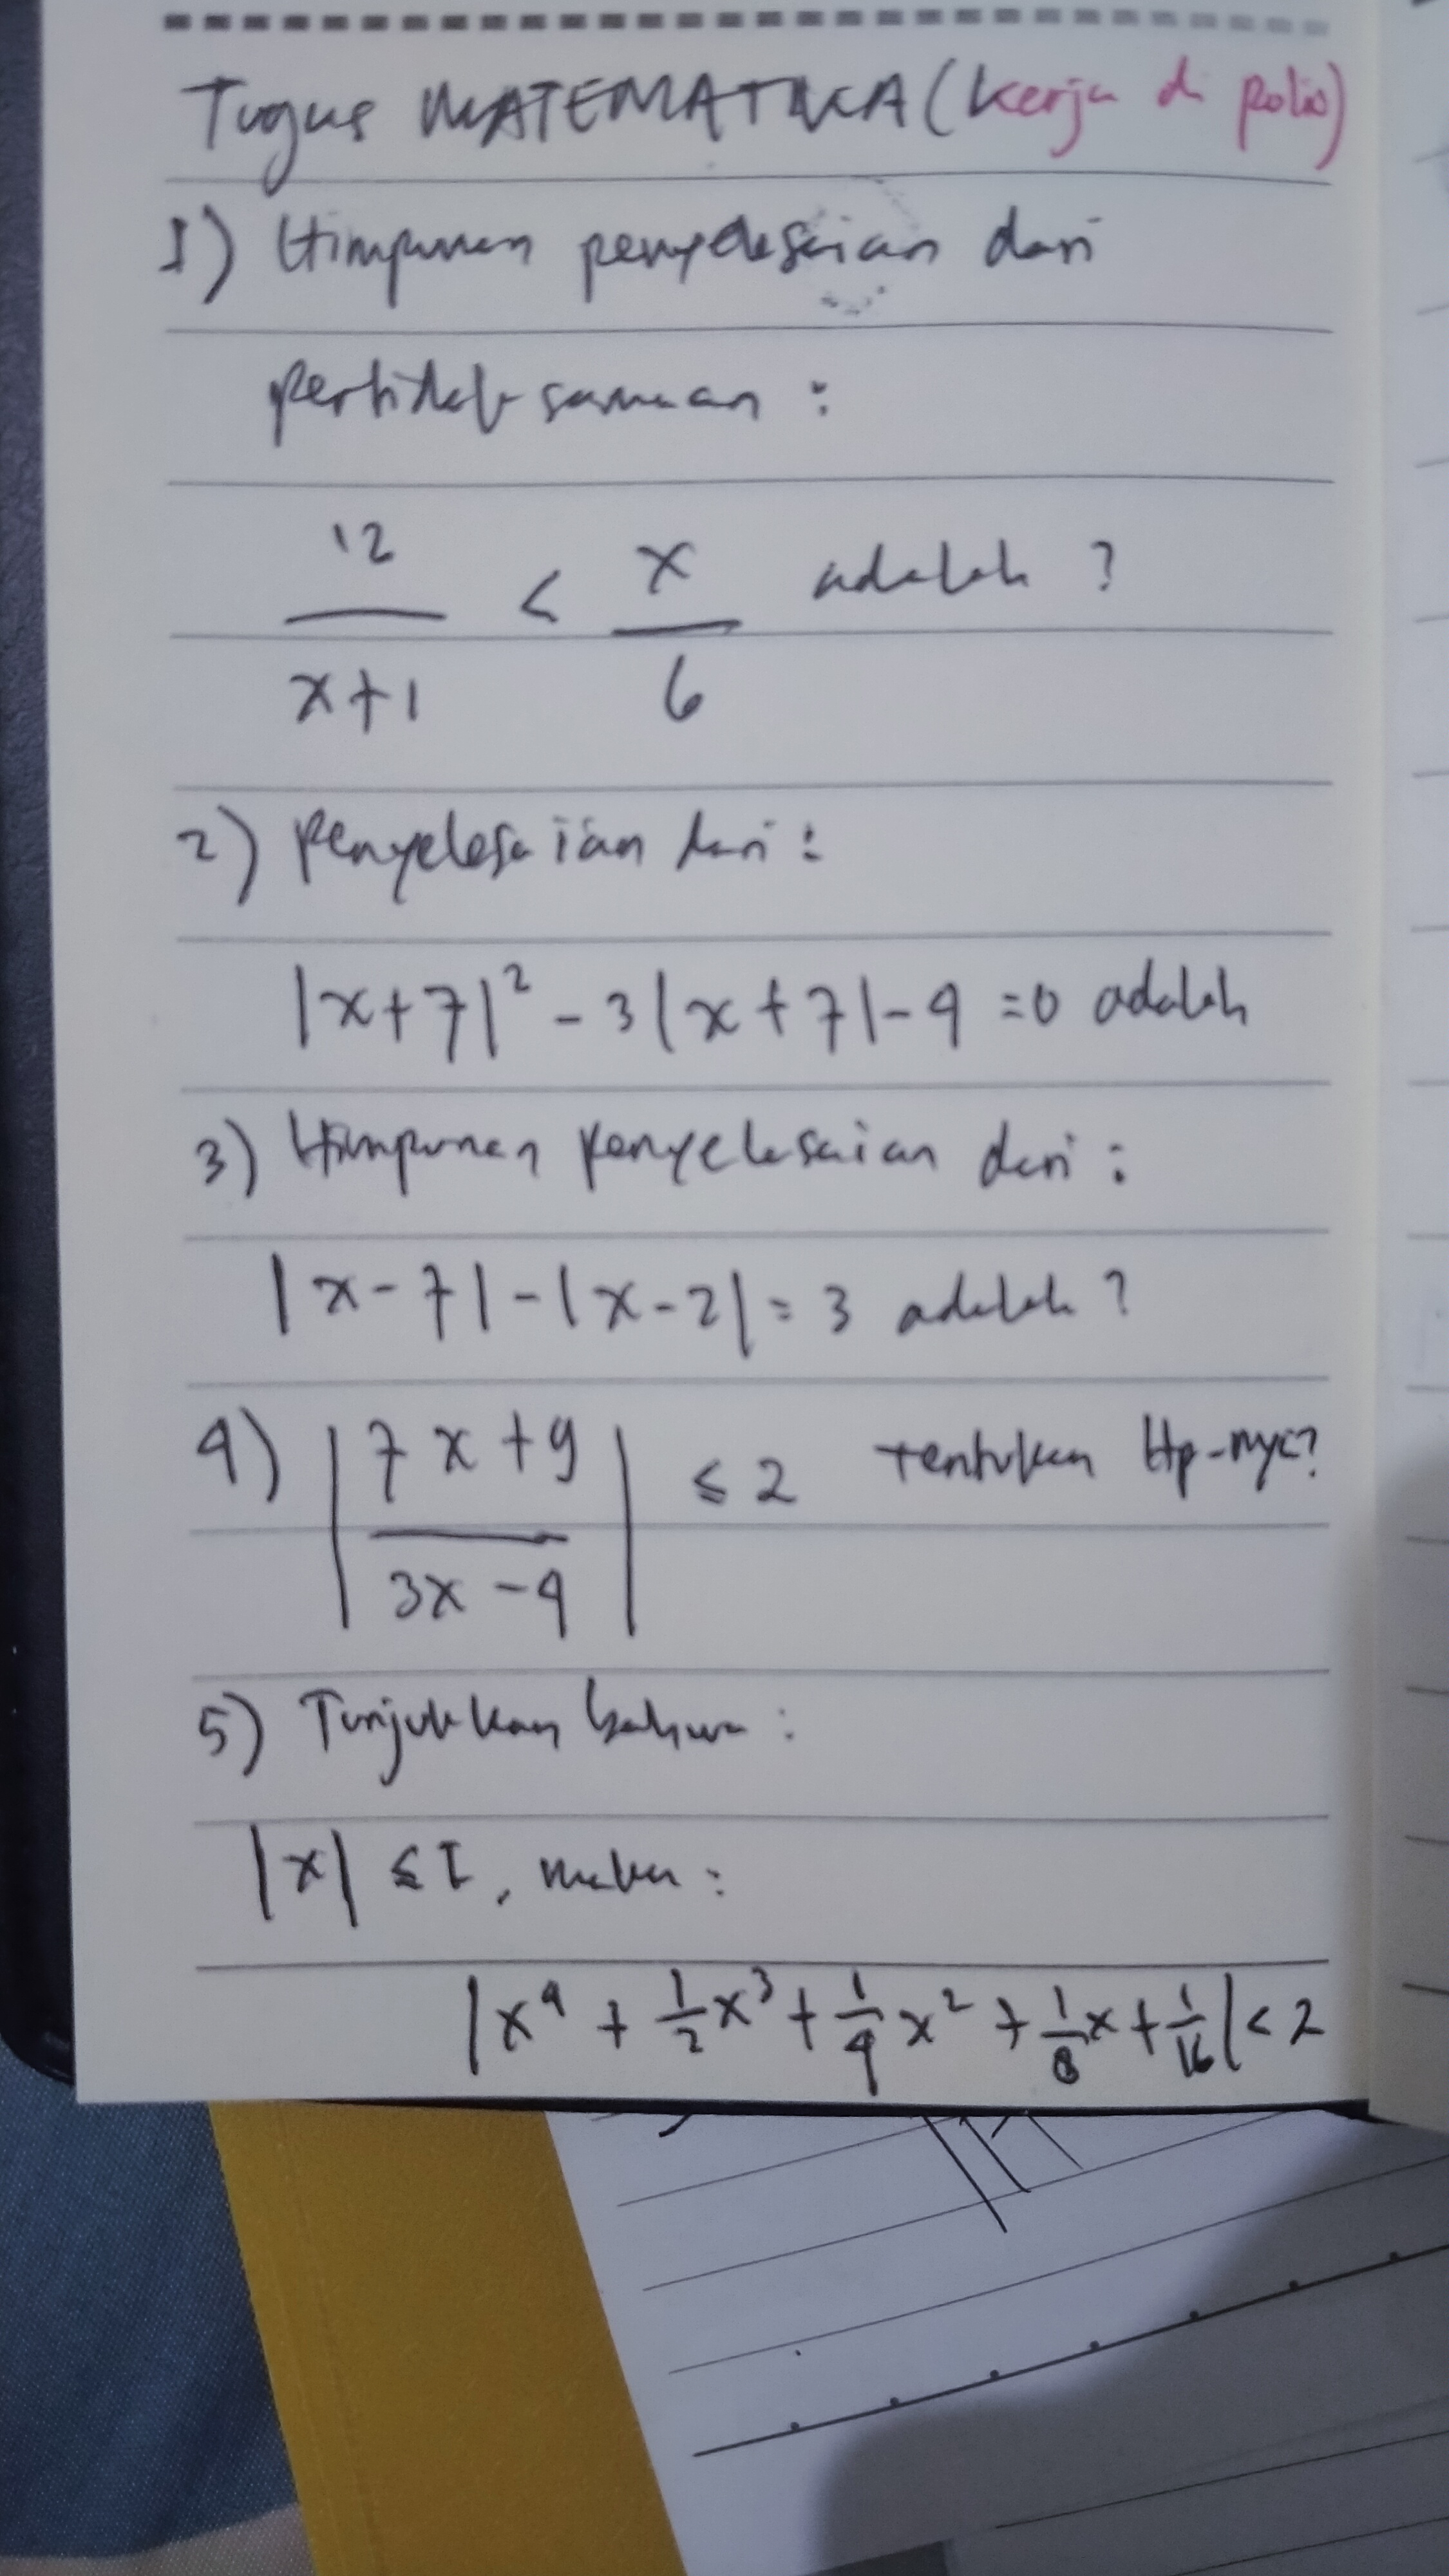 Tugas MATEMATIKA (kerja di polio)
1) Himpunan penyelesaian dari
pertidaksamaan :
12/x+1 < x/6 adalah ?
2) Penyelesaian dari :
|x+7|² - 3|x+7| - 4 = 0 adalah
3) Himpunan Penyelesaian dari :
|x-7| - |x-2| = 3 adalah ?
4) |7x+9/3x-4| ≤ 2 tentukan Hp-nya?
5) Tunjukkan bahwa :
|x| ≤ 1, maka :
|x⁴ + 1/2x³ + 1/4x² + 1/8x + 1/16| < 2